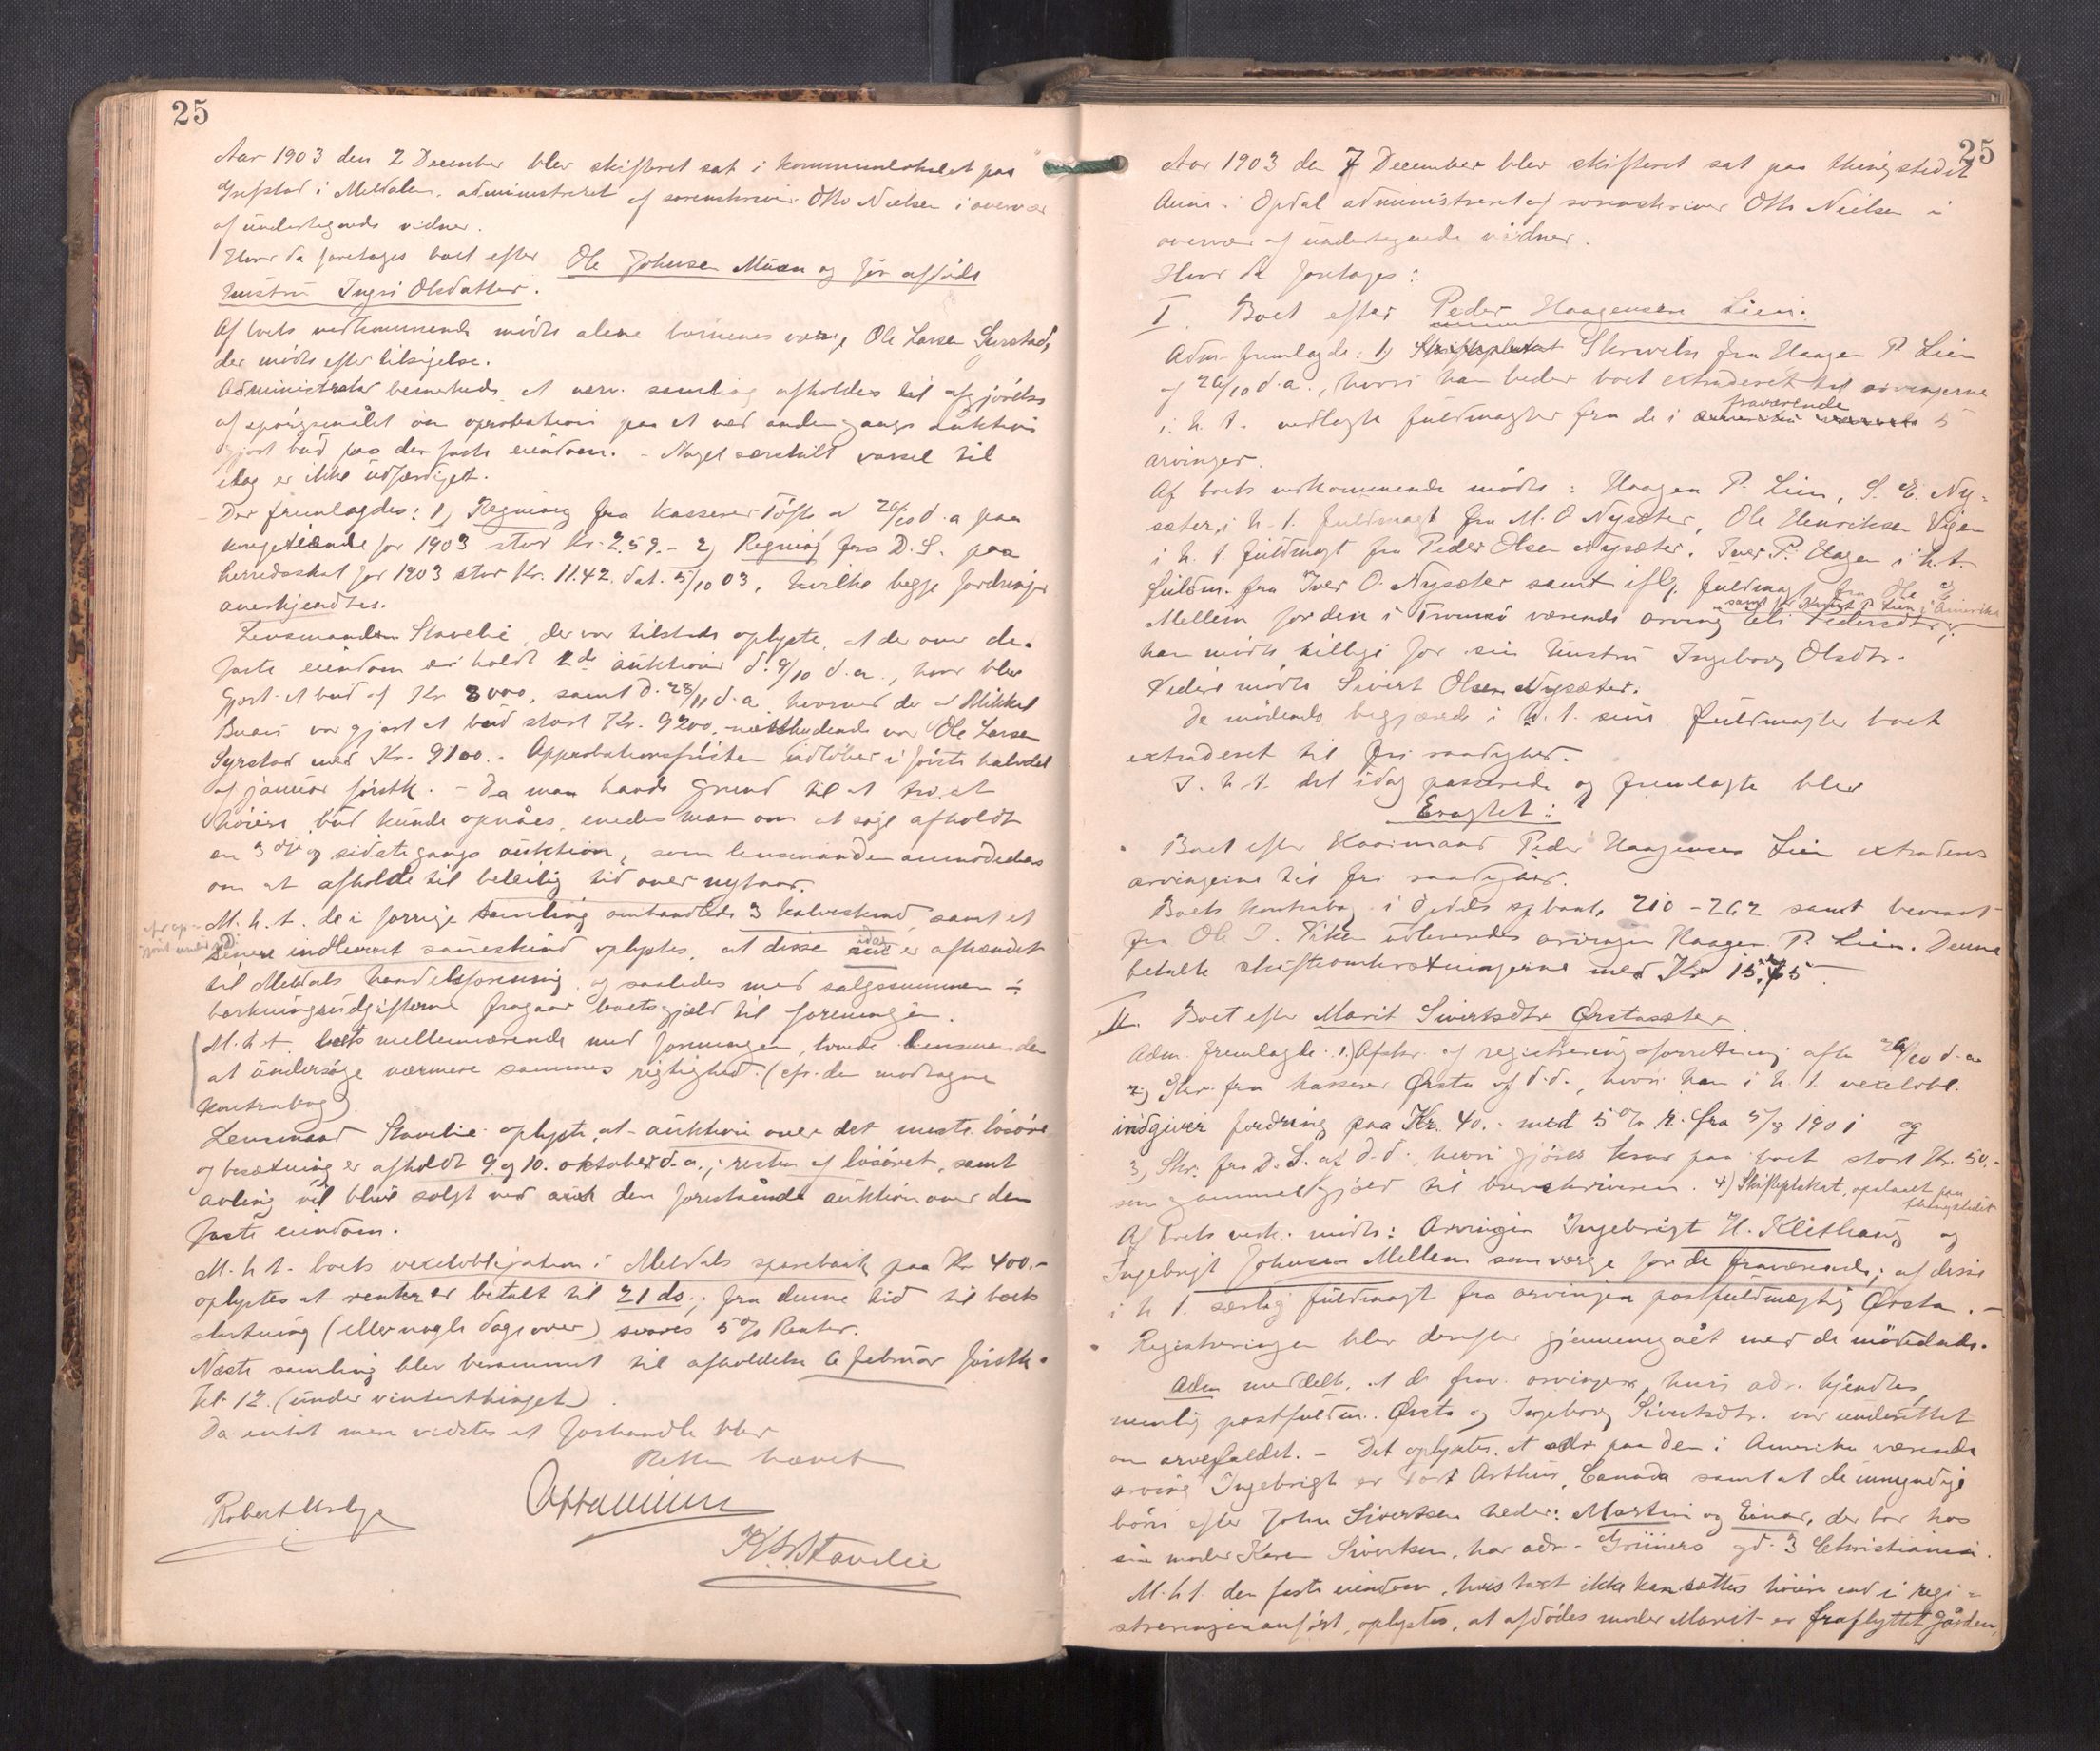 25
Aar 1903 den 2 December blev skifteret sat i kommunelokalet paa
Grefstad i Meldalen, administreret af sorenskriver Otto Nielsen i overvær
af undertegnede vidner.
Hvor da foretages boet efter Ole Johnsen Muan og før afdøde
hustru Ingri Olsdatter.
Af boets vedkommende mødte alene børnenes verge Ole Larsen Syrstad,
der mødte efter tilsigelse.
Administrator bemærkede at nærv. samling afholdes til afgjørelse
af spørgsmålet om aprobation paa et ved anden gangs auktion
gjort bud paa den faste eiendom. - Noget særskilt varsel til
idag er ikke udfærdiget.
Der fremlagdes: 1) Regning fra kasserer Tøfte af 26/10 d.a paa
for 1903 stor Kr. 2.59. - 2) Regning fra D.S. paa
herredsskat for 1903 stor Kr. 11.42. dat. 5/10 03, hvilke begge fordringer
anerkjendtes.
Lensmanden Stavelie, der var tilstede oplyste, at der over den
faste eiendom er holdt 2de auktioner d. 9/10 d.a., hvor blev
gjort et bud af Kr. 8000, samt d. 28/11 d.a. hvorved der af Mikkel
var gjort et bud stort Kr. 9200, næstbydende var Ole Larsen
Syrstad med Kr. 9100. - Approbationsfristen udløber i første halvdel
af januar førstk. - Da man havde grund til at tro, at
høiere bud kunde opnåes, enedes man om at søge afholdt
en 3die og sidste gangs auktion, som lensmanden anmodedes
om at afholde til beleilig tid over nytaar.
M.h.t. de i forrige samling omhandlede 3 kalveskind, samt et
senere indleveret saueskind oplystes, at disse idag er afhændet
til Meldals handelsforening og saaledes med salgssummen ÷
barkningsudgifterne fragaar boets gjæld til foreningen.
M.h.t. boets mellemværende med foreningen, lovede lensmanden
at undersøge nærmere sammes rigtighed. (cfr. den modtagne
kontrabog).
Lensmand Stavelie oplyste, at auktion over det meste løsøre
og besætning er afholdt 9 og 10. oktober d.a.; resten af løsøret, samt
avling vil blive solgt ved den forestående auktion over den
faste eiendom.
M.h.t. boets vexelobligation i Meldals sparebank paa Kr. 400.-
oplystes at renter er betalt til 21 ds.; fra denne tid til boets
slutning (eller nogle dage over) svares 5 % Renter.
Næste samling blev berammet til afholdelse 6 februar førstk.
kl. 12. (under vinterthinget).
Da intet mere vidstes at forhandle blev
Retten hævet
Otto Nielsen
K. Stavelie
25
Aar 1903 den 7 December blev skifteret sat paa thingstedet
Aune i Opdal administreret af sorenskriver Otto Nielsen i
overvær af undertegnede vidner.
Hvor da foretages:
I. Boet efter Peder Haagensen Lien.
Adm. fremlagde: 1) Skrivelse fra Haagen P. Lien
af 26/10 d.a., hvori han beder boet extraderet til arvingerne
i h. t. vedlagte fuldmagter fra de i fraværende 5
arvinger.
Af boets vedkommende mødte: Haagen P. Lien, S. E. Ny-
sæter, i h. t. fuldmagt fra M. O Nysæter, Ole Henriksen Vigen
i h. t. fuldmagt fra Peder Olsen Nysæter, Iver P. Hagen i h. t.
fuldm. fra Iver O. Nysæter samt iflg. fuldmagt fra Ole E
Mellem for den i Tromsø værende arving Eli Pedersdtr, samt for Knut P Lien i Amerika
han mødte tillige for sin hustru Ingeborg Olsdtr.
Videre mødte Sivert Olsen Nysæter.
De mødende begjærede i h. t. sine fuldmagter boet
extraderet til fri raadighed.
I. h. t. det idag passerede og fremlagte blev
Eragtet:
Boet efter Kaarmand Peder Haagensen Lien extraderes
arvingerne til fri raadighed.
Boets kontrabog i Opdals spbank, 210 - 262 samt
fra Ole I. udleveredes arvingen Haagen P. Lien. Denne
betalte skifteomkostningerne med Kr 15,75
II. Boet efter Marit Sivertsdtr Ørstasæter
Adm. fremlagde. 1.) Afskr. af registreringsforretning afh. 26/10 d.a
2) Skr. fra kasserer Ørsta af d.d., hvori han i h. t. vexelobl.
indgiver fordring paa Kr. 40.- med 5 % r. fra 5/8 1901 og
3) Skr. fra D.S. af d.d., hvori gjøres krav paa boet stort Kr. 50.-
som gammel gjæld til 4) Skifteplakat, opslaaet paa
thingstedet
Af boets vedk. mødte: Arvingen Ingebrigt H. Klethaug og
Ingebrigt Johnsen Mellem som verge for de fraværende; af disse
i h t. særlig fuldmagt fra arvingen postfuldmægtig Ørsta. -
Registreringen blev derefter gjennemgaaet med de mødende.
Adm meddelte, at de frav. arvinger, hvis adr. kjendtes,
nemlig postfuldm. Ørsta og Ingeborg Sivertsdtr. var underettet
om arvefaldet. - Det oplystes, at adr. paa den i Amerika værende
arving Ingebrigt er Port Arthur, Canada samt at de umyndige
børn efter John Sivertsen heder: Martin og Einar, der bor hos
sin moder Karen Sivertsen, har adr. Grüners gd. 3 Christiania.
M.h.t. den faste eiendom, hvis taxt ikke kan sættes høiere end i regi-
streringen anført, oplystes, at afdødes moder Marit er fraflyttet gården,